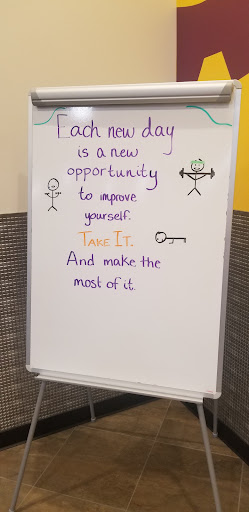 Each new day
is a new
opportunity
to improve
yourself.
TAKE IT.
And make the
most of it.